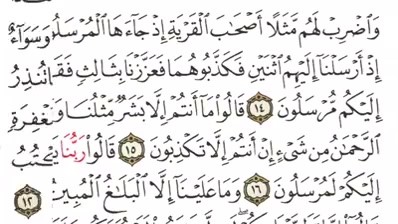 وَٱضْرِبْ لَهُم مَّثَلًا أَصْحَٰبَ ٱلْقَرْيَةِ إِذْ جَآءَهَا ٱلْمُرْسَلُو وَسَوَآءٌ
إِذْ أَرْسَلْنَآ إِلَيْهِمُ ٱثْنَيْنِ فَكَذَّبُوهُمَا فَعَزَّزْنَا بِثَالِثٍ فَقَا تُنذِرُ
إِلَيْكُم مُّرْسَلُونَ ١٤ قَالُوا۟ مَآ أَنتُمْ إِلَّا بَشَرٌ مِّثْلُنَا وَ غْفِرَةٍ
ٱلرَّحْمَٰنُ مِن شَىْءٍ إِنْ أَنتُمْ إِلَّا تَكْذِبُونَ ١٥ قَالُوا۟ رَبُّنَا يَ كْتُبُ
إِلَيْكُمْ لَمُرْسَلُونَ ١٦ وَمَا عَلَيْنَآ إِلَّا ٱلْبَلَٰغُ ٱلْمُبِين ١٢